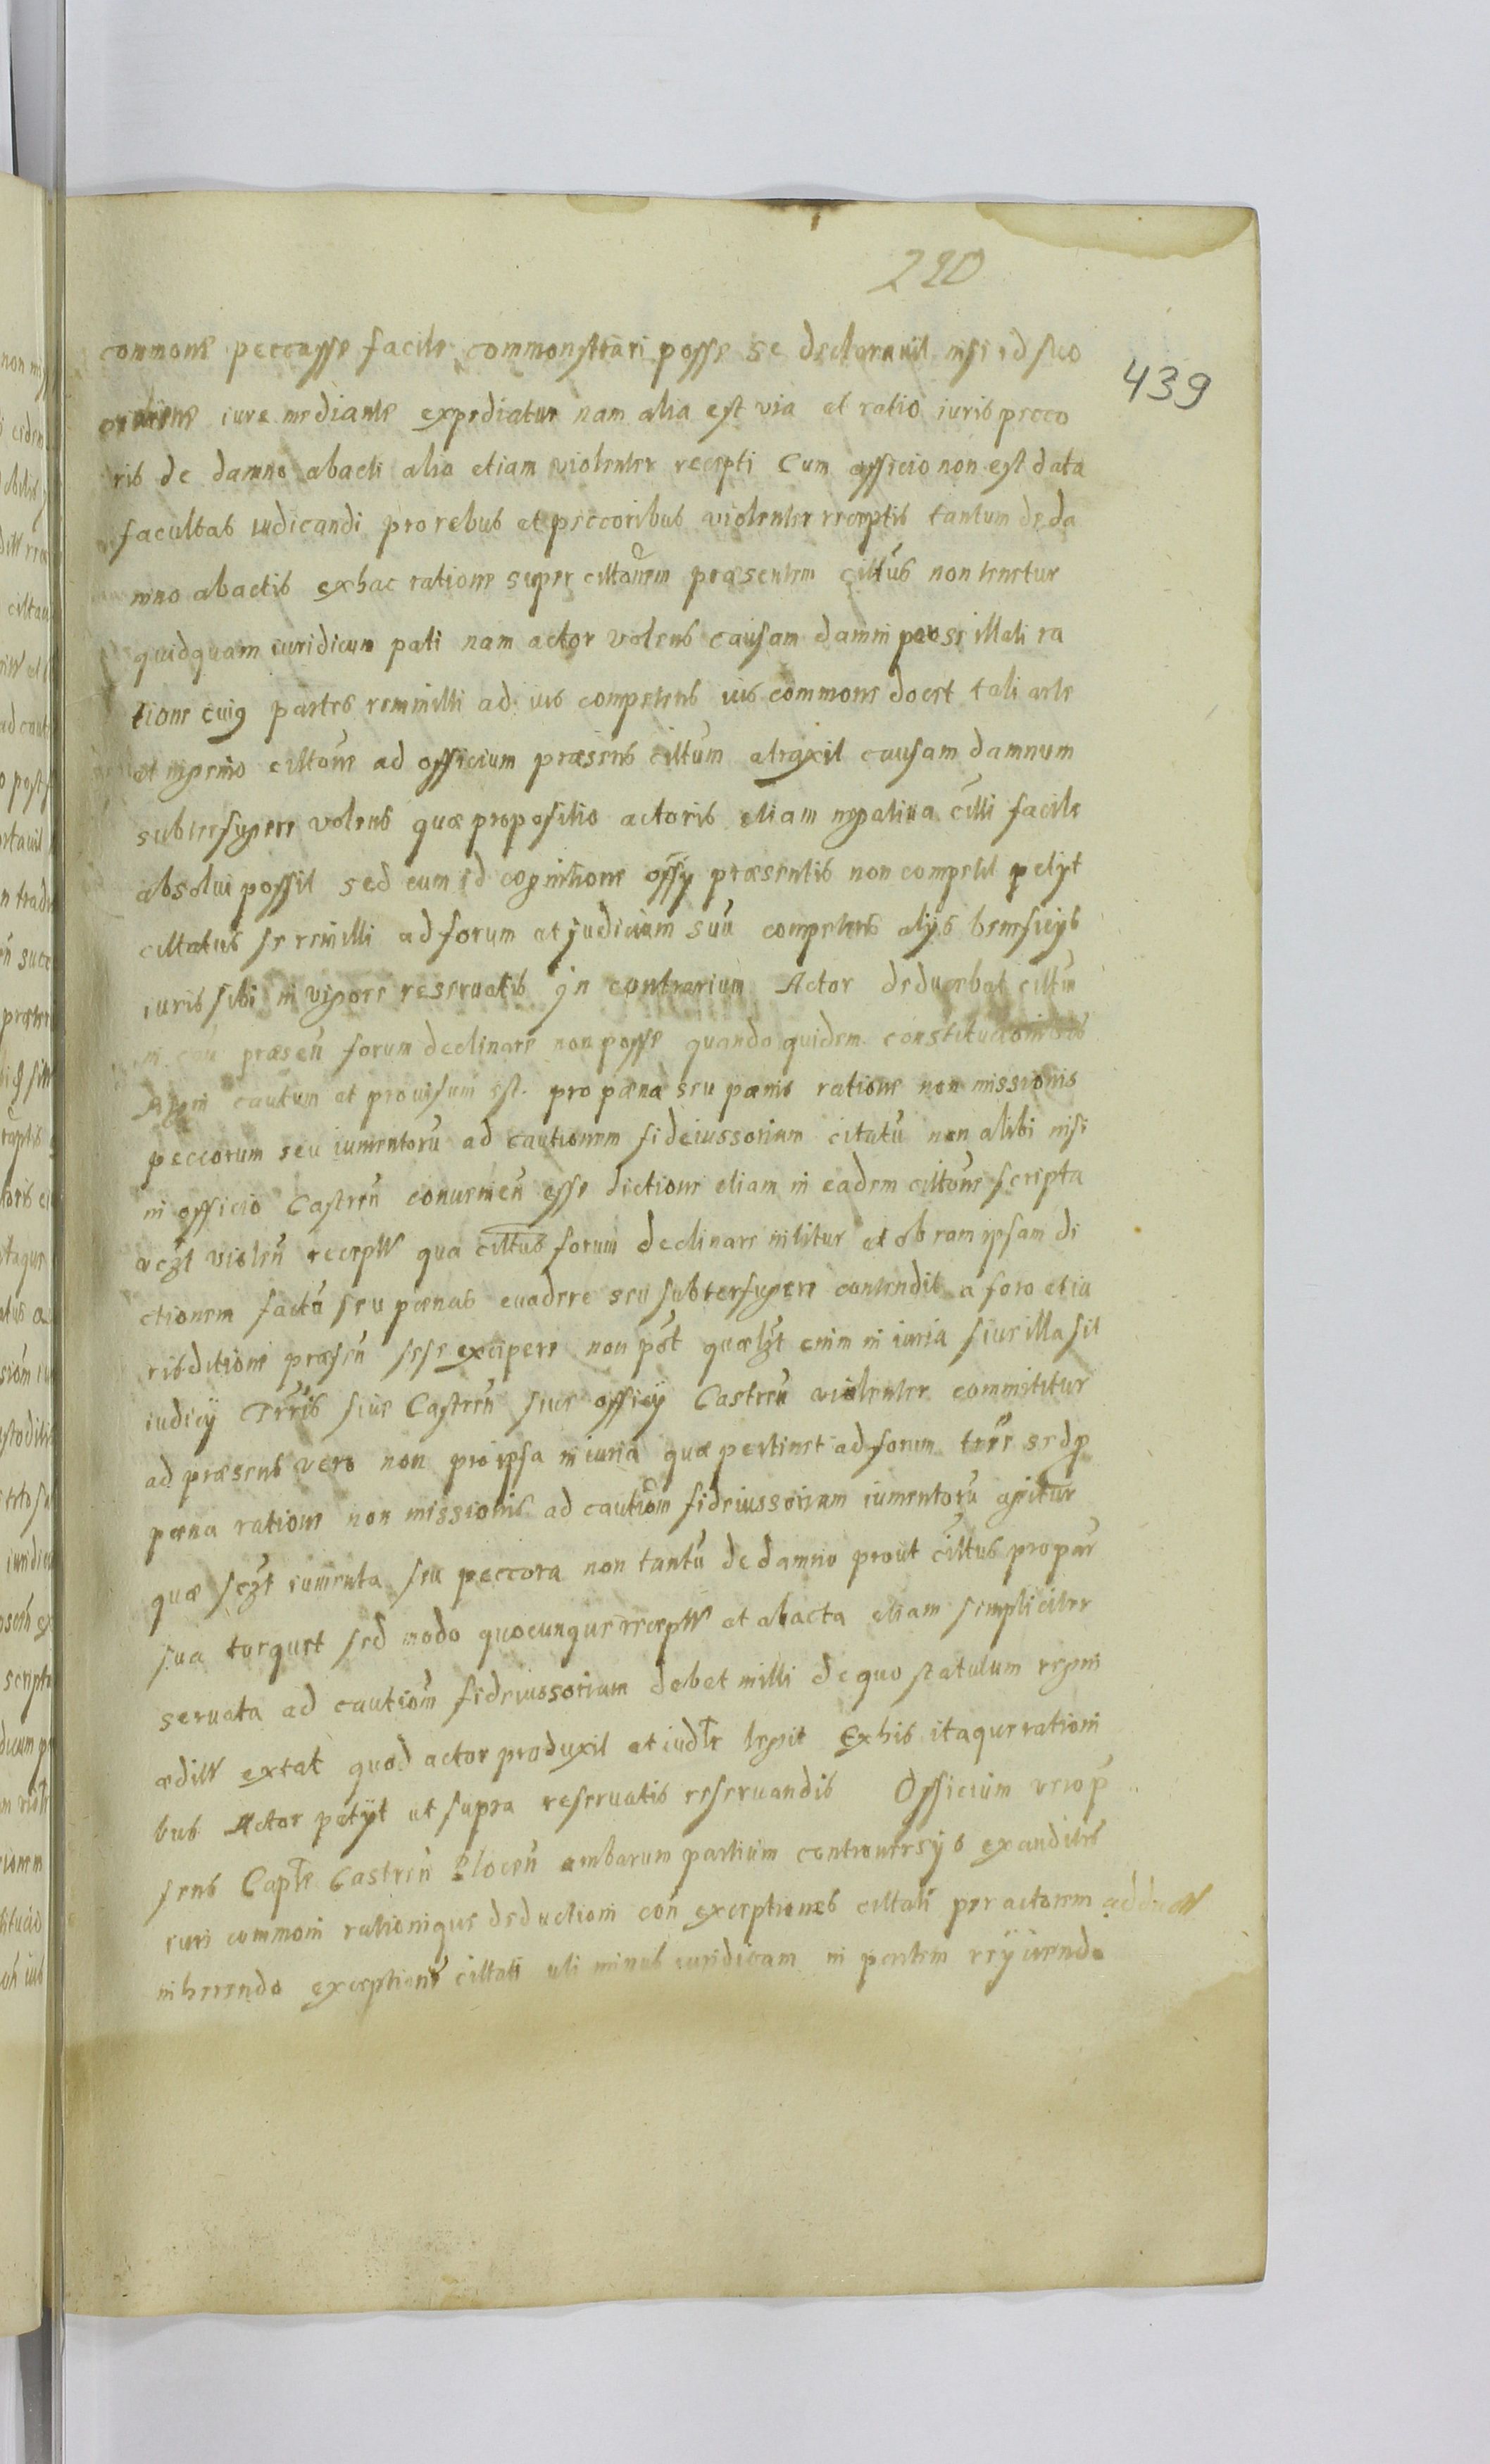 220
439
commone peccasse facile commonstrari posse se declarauit nisi id suo
ordine iure mediante expediatur nam alia est via et ratio iuris pecco
ris de damno abacti alia etiam violenter recepti Cum officio non est data
facultas iudicandi pro rebus et peccoribus violenter receptis tantum de da
mno abactis ex hac ratione super citt̄onem præsentem citt̄us non tenetur
quidquam iuridicum pati nam actor volens causam damni per se illati ra
tione cuig partes remitti ad ius competens ius commone docet tali arte
et ingenio citt̄one ad officium præsens citt̄um atraxit causam damnum
subterfugere volens quæ propositio actoris etiam negatiua citt̄i facile
absolui possit sed cum id cognitione offy præsentis non competit petyt
cittatus se remitti ad forum et judicium suū competens alys beneficys
iuris sibi in vigore reseruatis jn contrarium Actor deducebat citt̄u
præseñ forum declinare non posse quando quidem constitucionibus
Regni cautum et prouisum est pro pæna seu pænis ratione non missionis
peccorum seu iumentorū ad cautionem fideiussoriam citatū non alibi nisi
in officio Castreñ conuenieñ esse dictione etiam in eadem citt̄one scripta
vczt violeñ recept̄ qua citt̄us forum declinare nititur et ob eam ipsam di
ctionem factū seu pænas euadere seu subterfugere contendit a foro et iu
risditione præseñ sese excipere non pōt quælzt enim iniuria siue illa sit
iudicij Terr̄is siue Castreñ siue officij Castreñ violenter committitur
ad præsens vero non pro ipsa iniuria quæ pertinet ad forum terr̄e sed p̱
pæna ratione non missionis ad cautiōm fideiussoriam iumentorū agitur
quæ sczt iumenta seu peccora non tantū de damno prout citt̄us pro par̄
sua torquet sed modo quocunque recept̄ et abacta etiam simpliciter
seruata ad cautiōm fideiussoriam debet mitti de quo statutum regni
ædit̄ extat quod actor produxit et iudt̄e legit Ex his itaque rationi
bus Actor petyt ut supra reseruatis reseruandis Officium vero p̄
sens Capt̄e Castreñ Ploceñ ambarum partium controuersys exauditis
iuri commoni rationique deductioni coñ exceptiones cittati per actorem adduct̄
inherendo exceptione cittati uti minus iuridicam in partem reyciendo